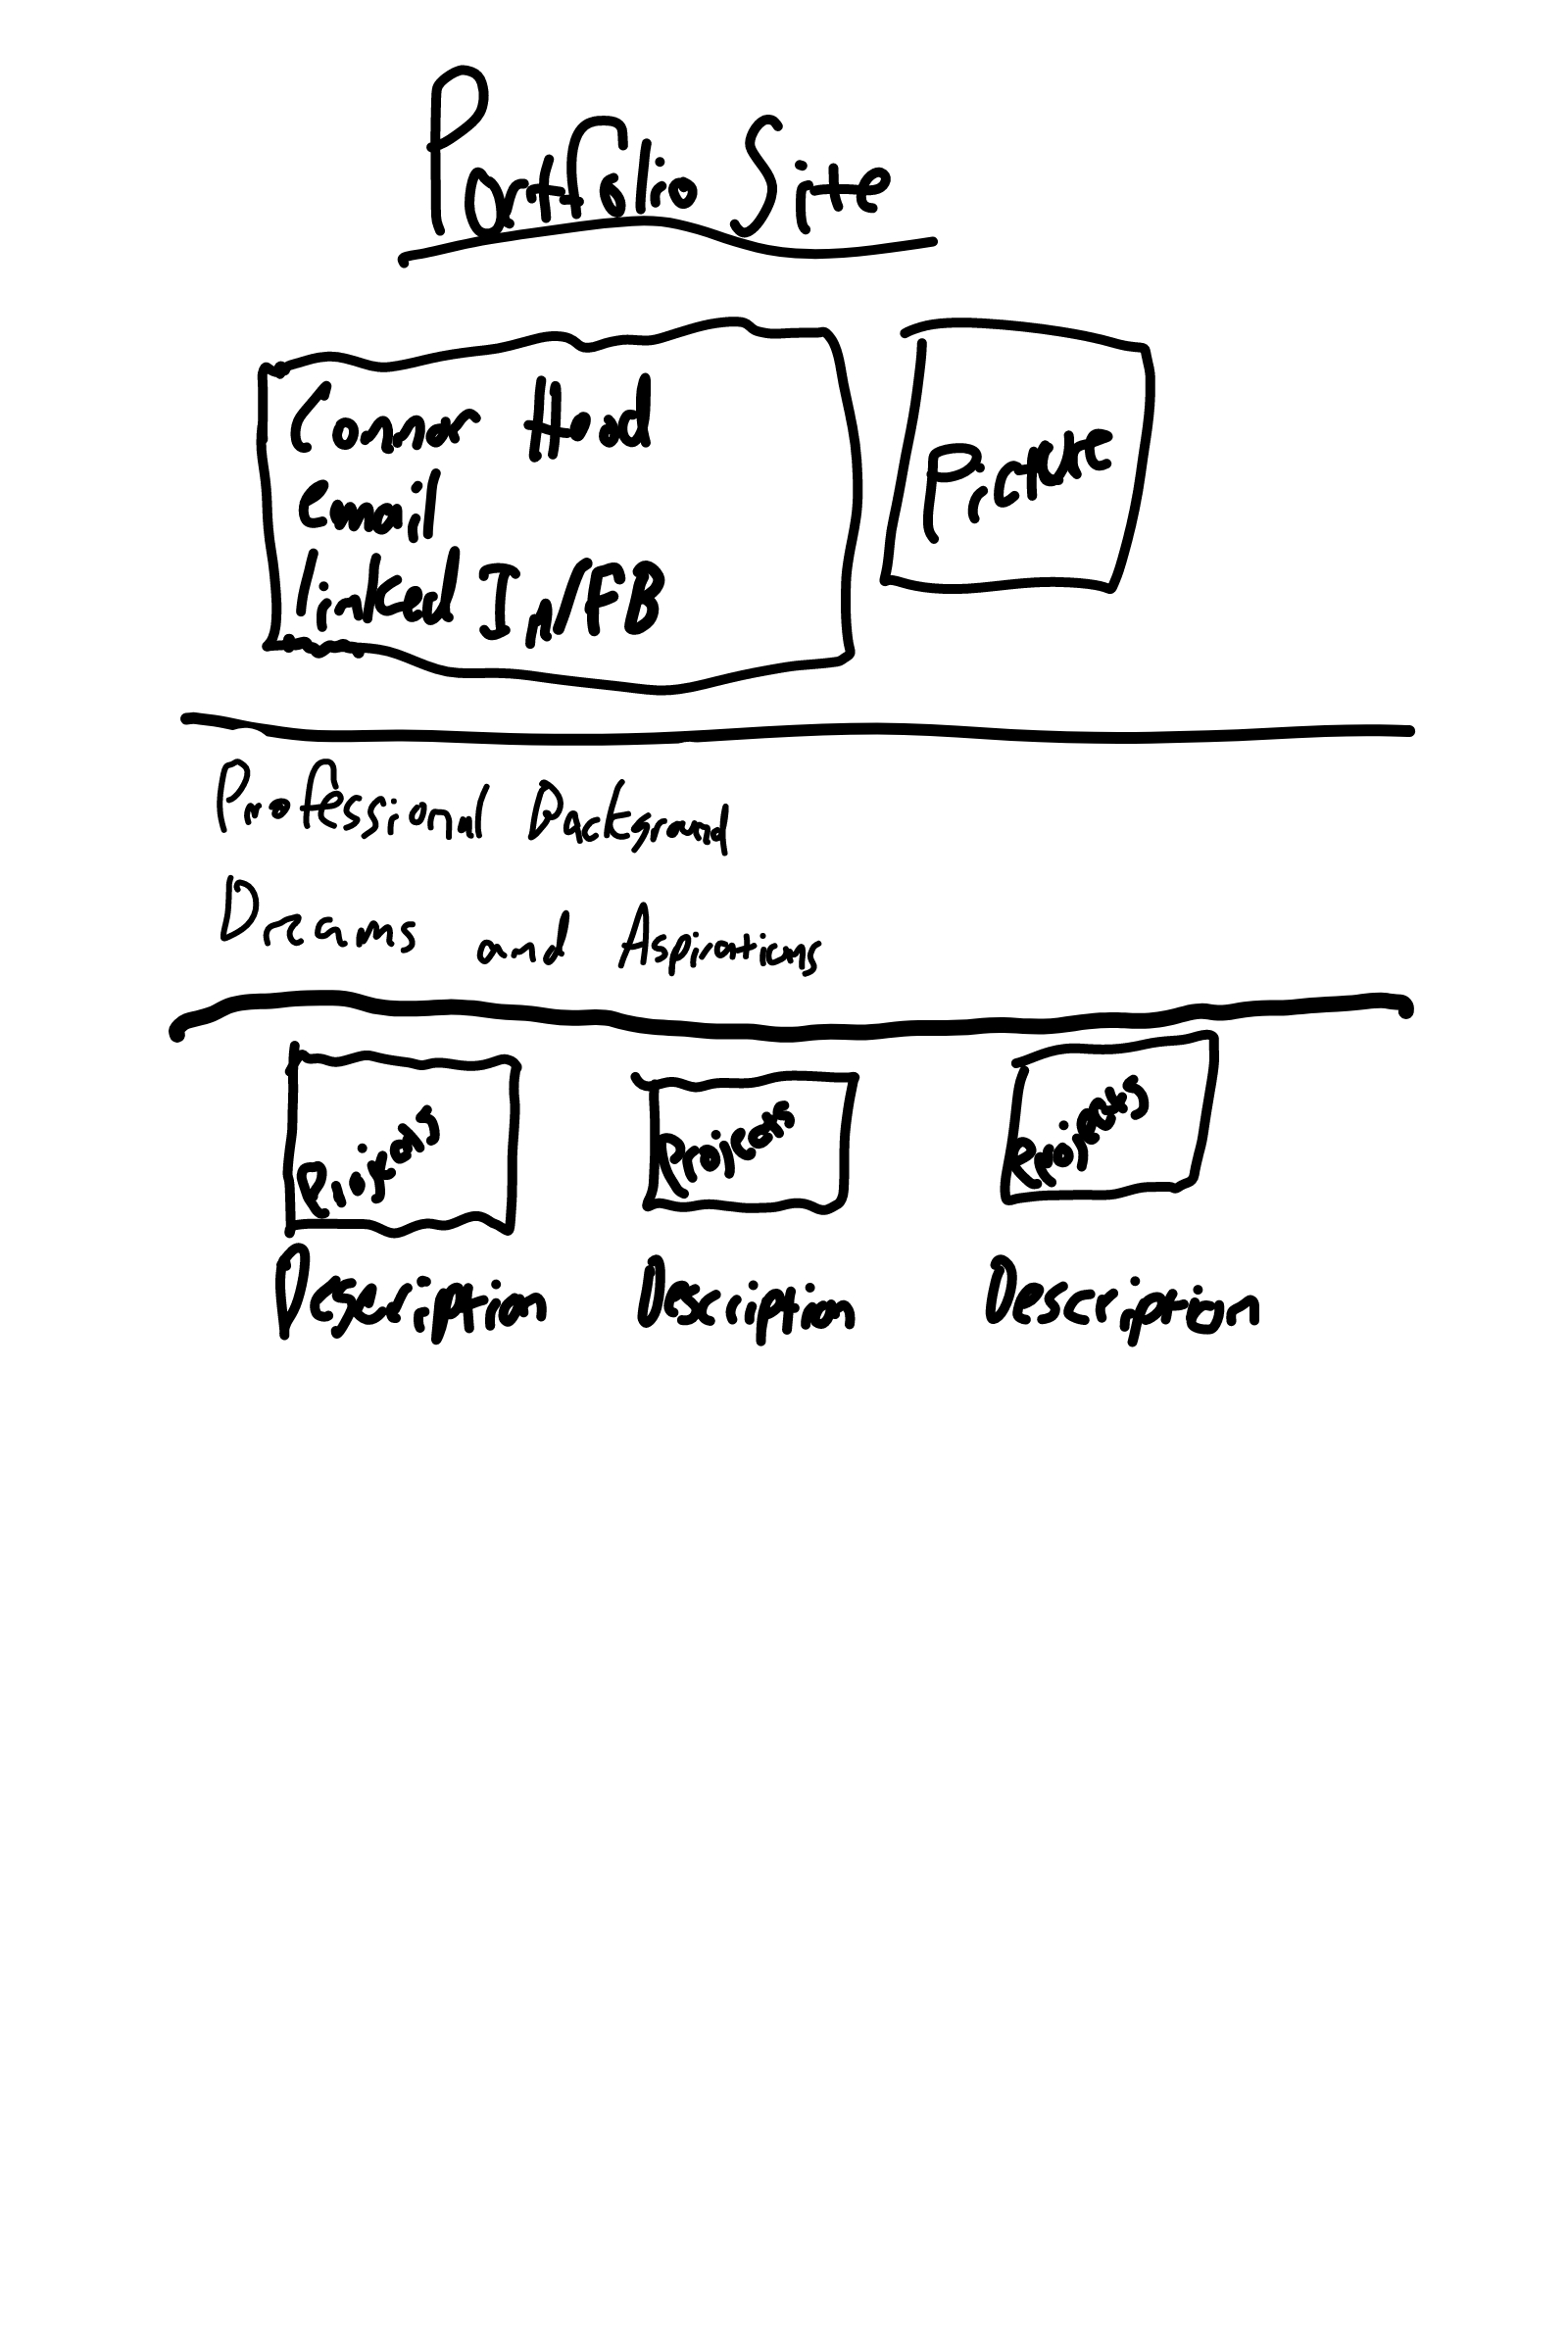 Portfolio Site
Connor Head
email
linked In/FB
Picture
Professional Background
Dreams and Aspirations
Projects Projects Projects
Description Description Description